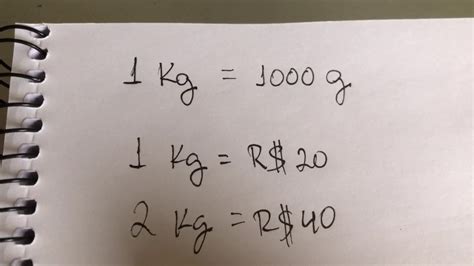 1 Kg = 1000 g
1 Kg = R$ 20
2 Kg = R$ 40